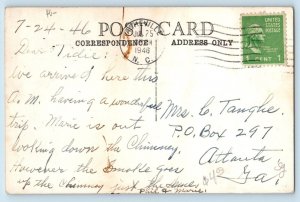 7-24-46
POST CARD
CORRESPONDENCE
ADDRESS ONLY
JUL 25
1946
N. C.
1 CENT 1
Dear Tidie:
We arrived here this
A.M. having a wonderful
trip. Marie is out
looking down the Chimney.
However the smoke goes
up the Chimney just the same
Phil & Marie
Mrs. C. Tanghe.
P.O. Box 297
Atlanta
Ga.